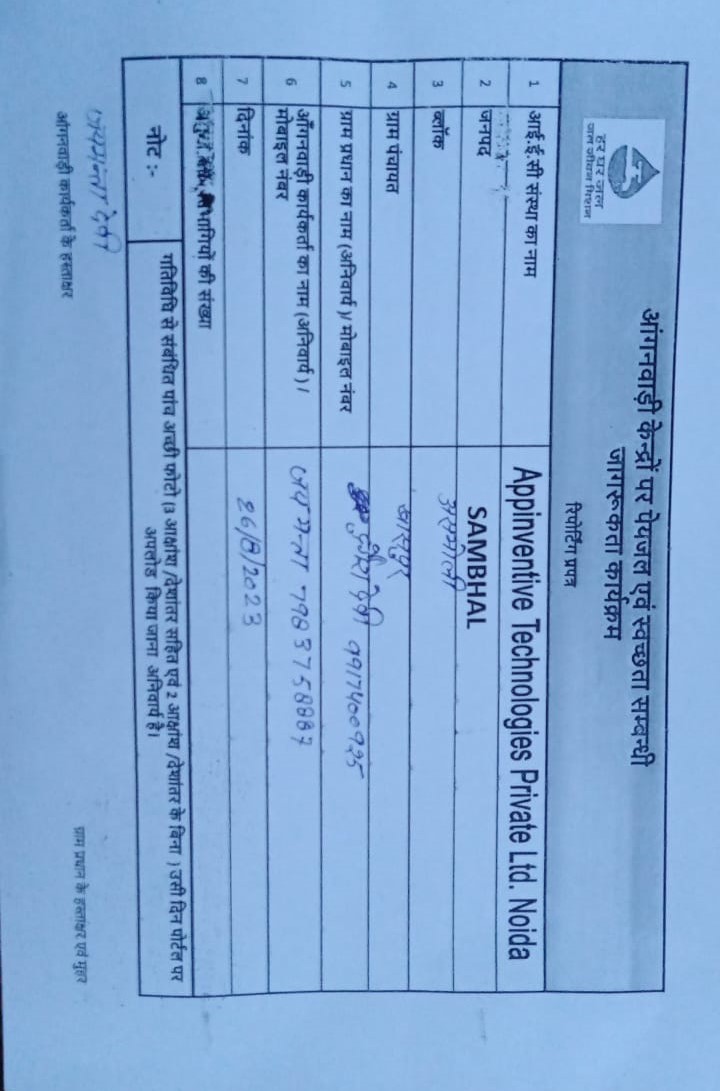 हर घर जल
जल जीवन मिशन
आंगनवाड़ी केन्द्रों पर पेयजल एवं स्वच्छता सम्बन्धी
जागरूकता कार्यक्रम
रिपोर्टिंग प्रपत्र
1 आई.ई.सी संस्था का नाम Appinventive Technologies Private Ltd. Noida
2 जनपद SAMBHAL
3 ब्लॉक असमोली
4 ग्राम पंचायत
5 ग्राम प्रधान का नाम (अनिवार्य)/ मोबाइल नंबर देवी 9917400925
6 आँगनवाड़ी कार्यकर्ता का नाम (अनिवार्य) /
मोबाइल नंबर 7983758887
7 दिनांक 26/8/2023
8 की संख्या
नोट :- गतिविधि से संबंधित पांच अच्छी फोटो (3 आक्षांश /देशांतर सहित एवं 2 आक्षांश /देशांतर के बिना ) उसी दिन पोर्टल पर
अपलोड किया जाना अनिवार्य है।
देवी
आँगनवाड़ी कार्यकर्ता के हस्ताक्षर
ग्राम प्रधान के हस्ताक्षर एवं मुहर